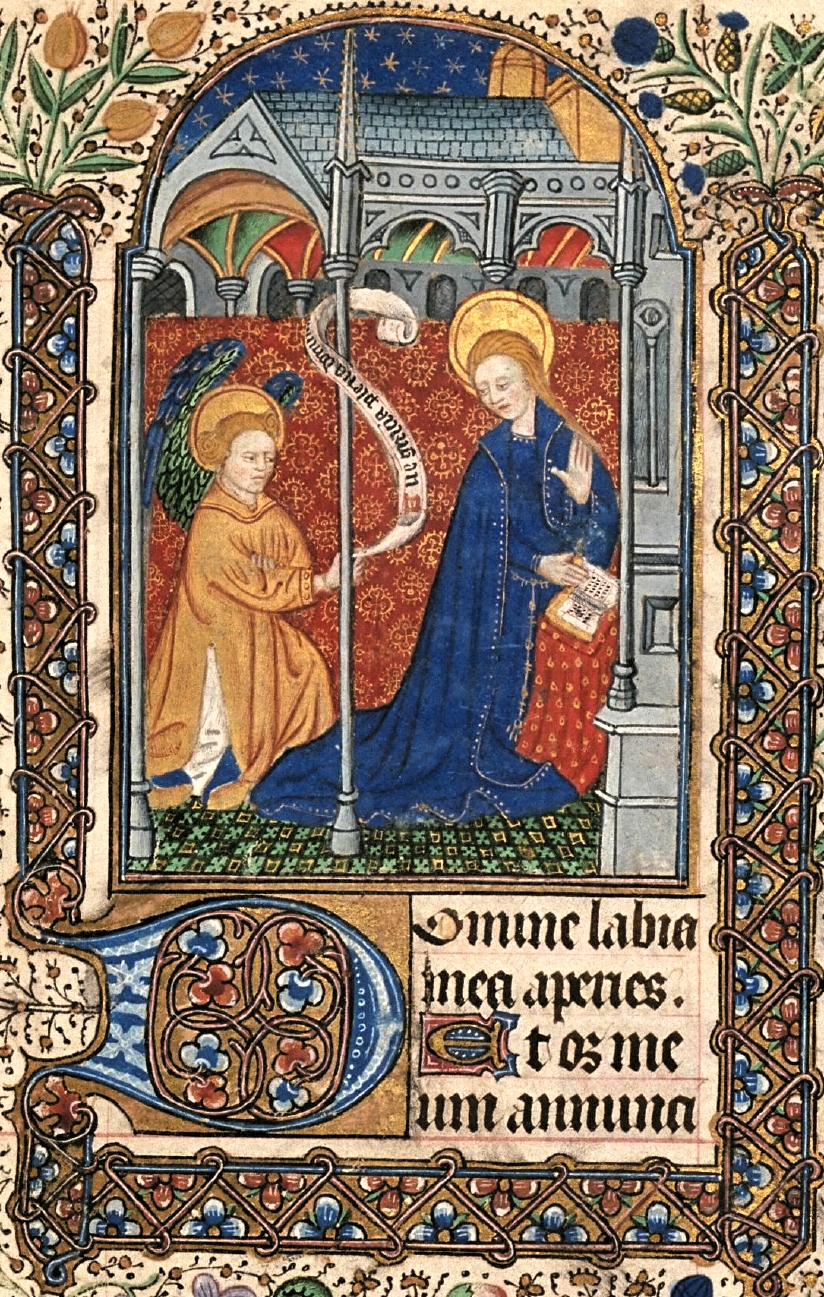 Aue gracia plena dominu
Domine labia
mea aperies.
Et os me
um annuncia